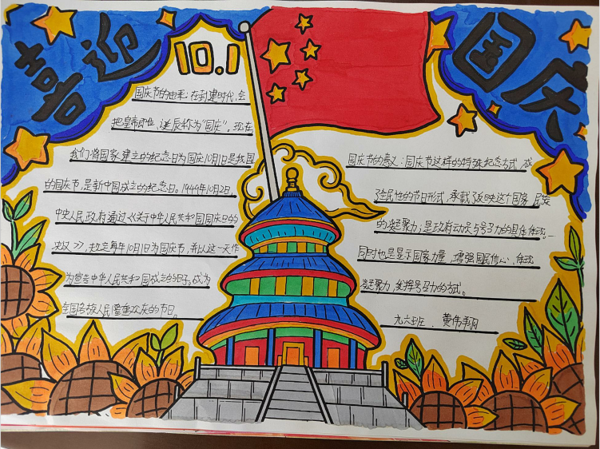 喜迎
国庆
10.1
国庆节的由来：在封建时代，会
把皇帝即位、诞辰称为“国庆”。现在
我们将国家建立的纪念日为国庆10月1日是我国
的国庆节，是新中国成立的纪念日。1949年10月2日，
中央人民政府通过《关于中华人民共和国国庆日的
决议》，规定每年10月1日为国庆节，并以这一天作
为宣告中华人民共和国成立的日子，成为
全国各族人民隆重欢庆的节日。
国庆节的意义：国庆节这样的特殊纪念方式，成
全民性的节日形式，承载了反映这个国家、民族
的凝聚力；是政府动员与号召力的具体体现…
同时也是显示国家力量，增强国民信心，体现
凝聚力，发挥号召力的方式。
九六班